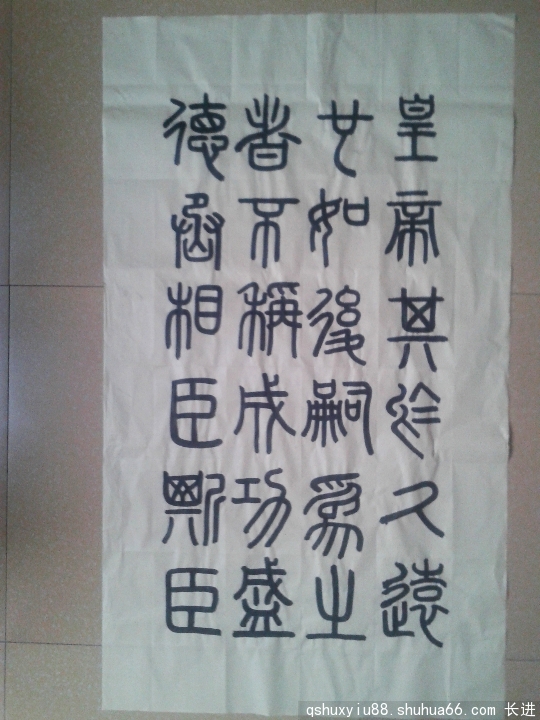 皇帝其於久遠
也如後嗣爲之
者不稱成功盛
德丞相臣斯臣
qshuxyiu88.shuhua66.com 长进